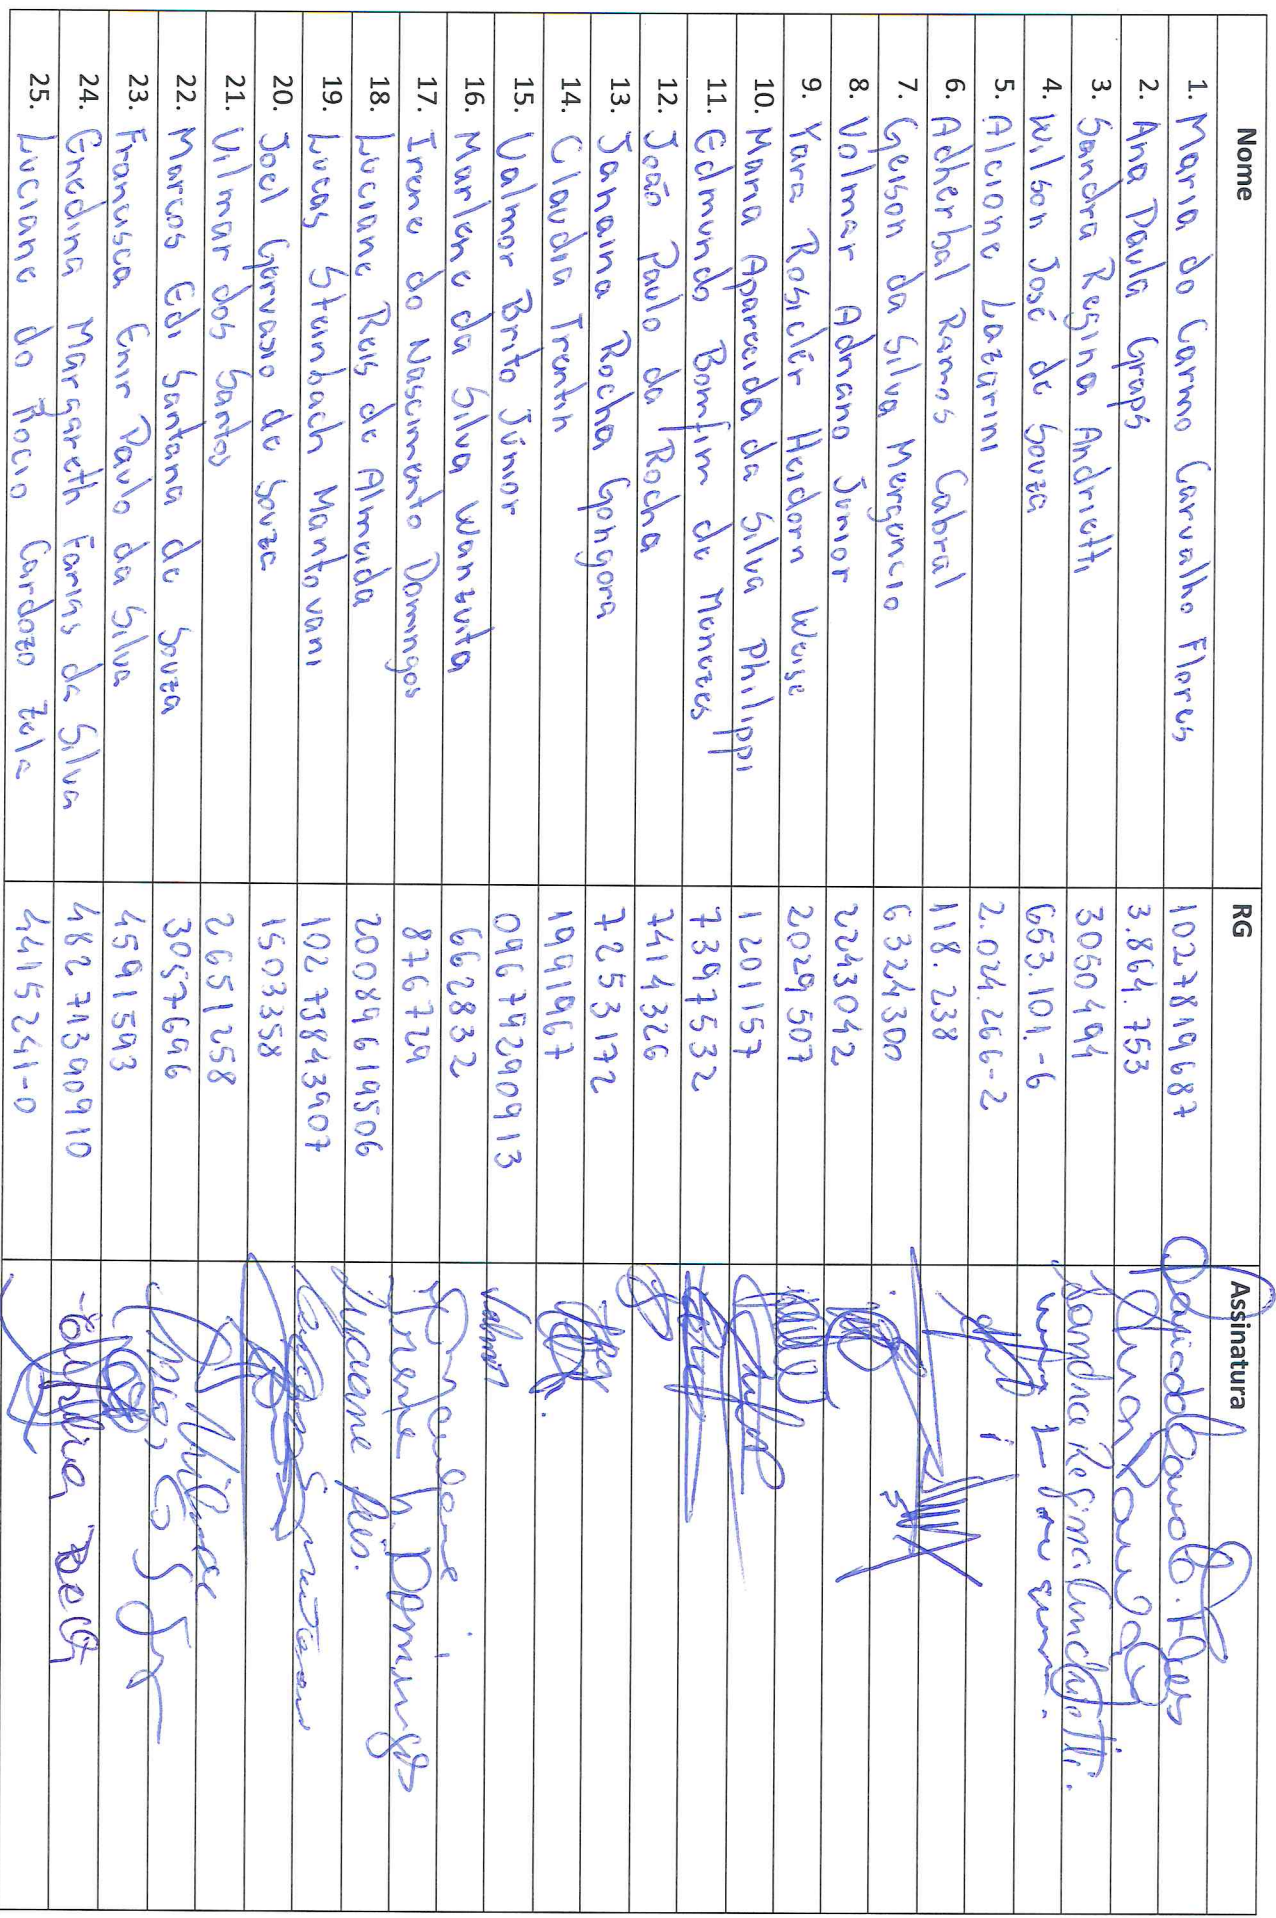 Nome RG Assinatura
1. Maria do Carmo Carvalho Flores 1027819687
2. Ana Paula Graps 3.864.753
3. Sandra Regina Andrietti 3050494 Sandra Regina Andrietti.
4. Wilson José de Souza 653.101.-6
5. Alcione Lazarini 2.024.266-2
6. Adherbal Ramos Cabral 118.238
7. Geison da Silva Mergencio 6324300
8. Volmar Adriano Junior 2243042
9. Yara Rosiclér Heidorn Weise 2029507
10. Maria Aparecida da Silva Philippi 1201157
11. Edmundo Bomfim de Menezes 7397532
12. João Paulo da Rocha 7414326
13. Janaina Rocha Gongora 7253172
14. Claudia Trentin 1991967
15. Valmor Brito Júnior 09679290913 Valmor
16. Marlene da Silva Wanzuita 6628832
17. Irene do Nascimento Domingos 876729 Irene N. Domingos
18. Luciane Reis de Almeida 20089619506 Luciane Reis.
19. Lucas Steinbach Mantovani 10273843907
20. Joel Gervasio de Souza 1503358
21. Vilmar dos Santos 2651258 Vilmar
22. Marcos Edi Santana de Souza 3057696
23. Francisca Enir Paulo da Silva 4591593
24. Enedina Margareth Farias da Silva 48271390910
25. Luciane do Rocio Cardozo Zela 4415241-0